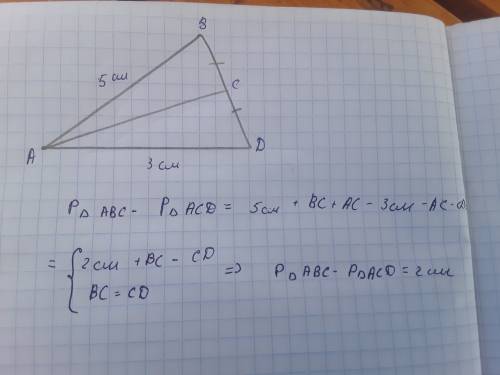 B
5 см
C
A
D
3 см
P△ ABC - P△ ACD = 5см + BC + AC - 3см - AC - CD
= { 2см + BC - CD
BC = CD
=> P△ABC - P△ACD = 2см